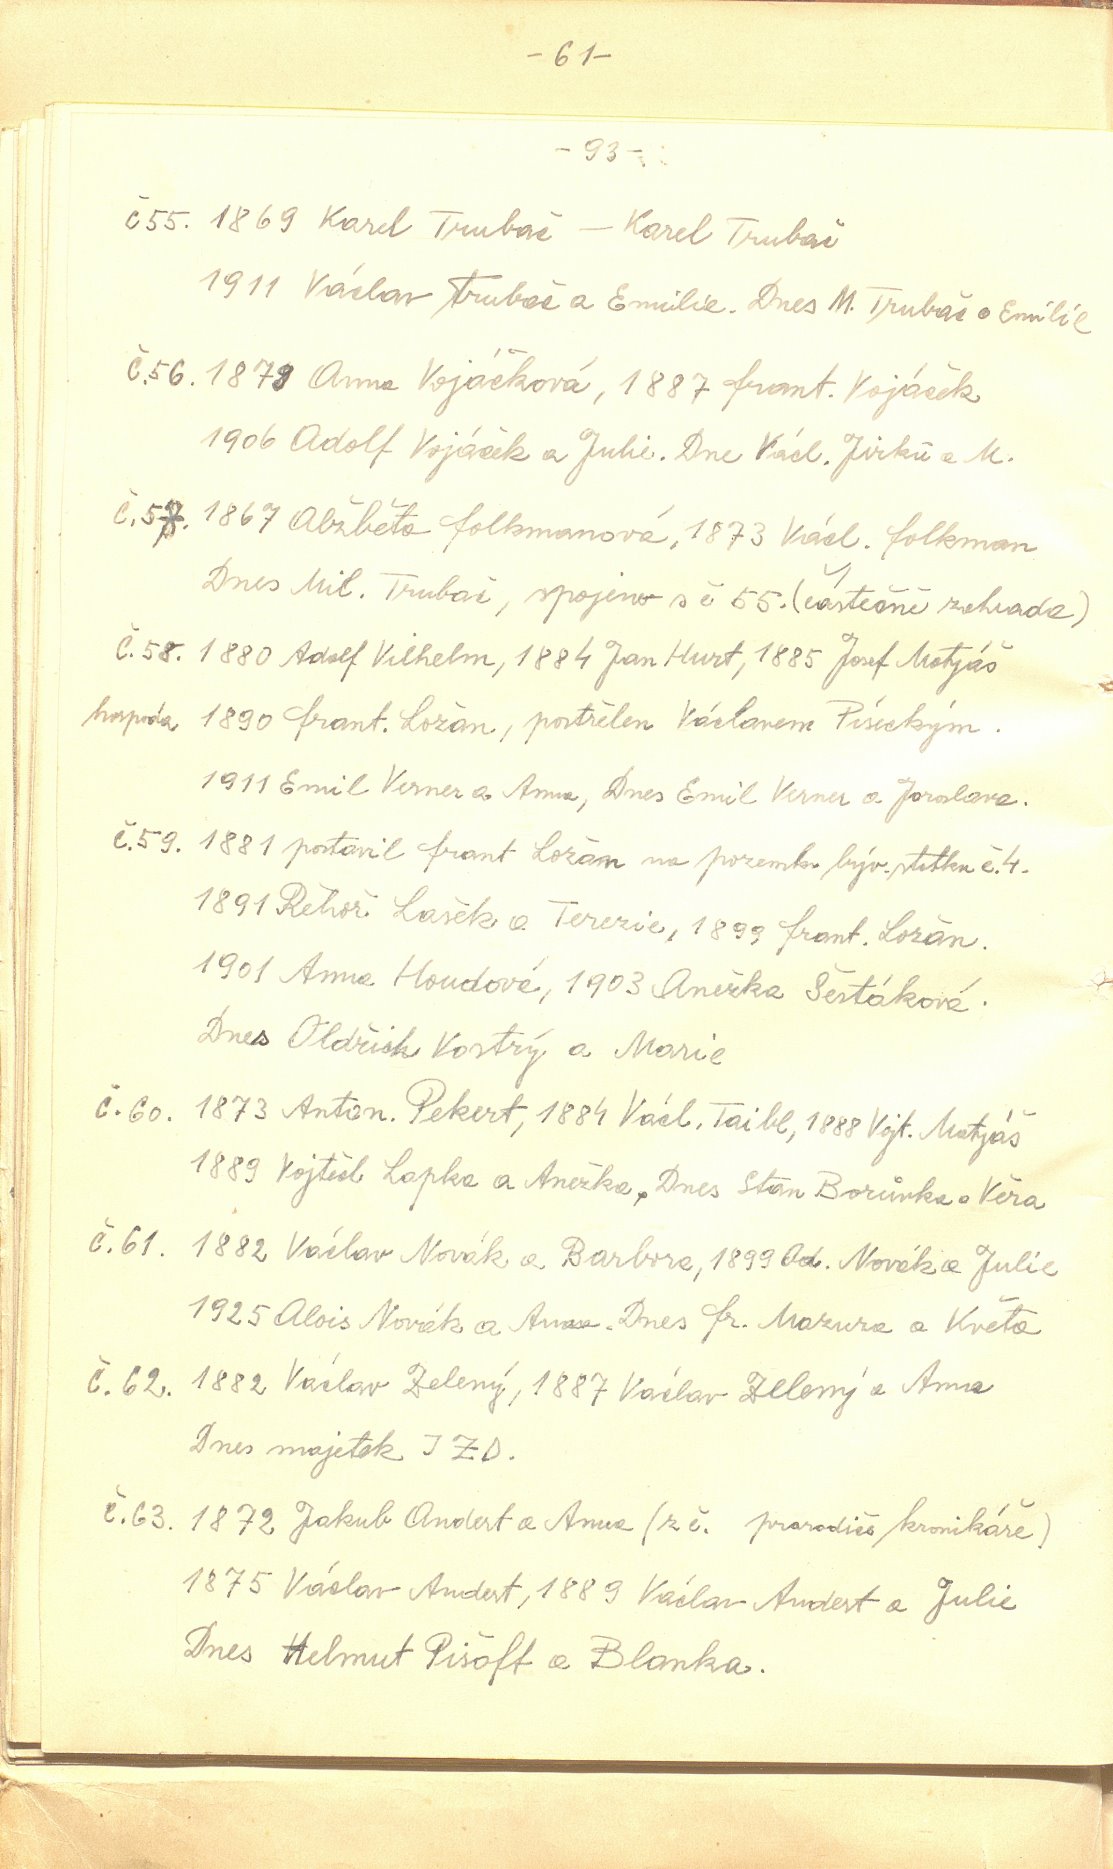 - 61 -
- 93 -
č 55. 1869 Karel Trubač — Karel Trubač
1911 Václav Trubač a Emilie. Dnes M. Trubač a Emilie
č.56. 1879 Anna Vojáčková, 1887 frant. Vojáček
1906 Adolf Vojáček a Julie. Dne Václ. Jirků a M.
č.57. 1867 Alžběta folkmanová, 1873 Václ. folkman
Dnes Mil. Trubač, spojeno s č 55. (částečně zahrada)
č.58. 1880 Adolf Vilhelm, 1884 Jan Hurt, 1885 Josef Matjáš
hospoda 1890 frant. Ložan, postřelen Václavem Píseckým.
1911 Emil Verner a Anna, Dnes Emil Verner a Jaroslava.
č.59. 1881 postavil frant Ložan na pozemk. býv. statku č.4.
1891 Řehoř Lašek a Terezie, 1899 frant. Ložan.
1901 Anna Houdová, 1903 Anežka Šestáková.
Dnes Oldřich Vostrý a Marie
č.60. 1873 Anton. Pekert, 1884 Václ. Taibl, 1888 Vojt. Matjáš
1889 Vojtěch Lapka a Anežka, Dnes Stan Borůvka a Věra
č.61. 1882 Václav Novák a Barbora, 1899 Ad. Novák a Julie
1925 Alois Novák a Anna. Dnes fr. Mazura a Květa
č.62. 1882 Václav Zelený, 1887 Václav Zelený a Anna
Dnes majetek JZD.
č.63. 1872 Jakub Andert a Anna (z č. prarodiče kronikáře)
1875 Václav Andert, 1889 Václav Andert a Julie
Dnes Helmut Pišoft a Blanka.